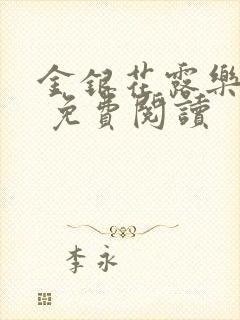 金銀花露樂
免費閱讀
李永